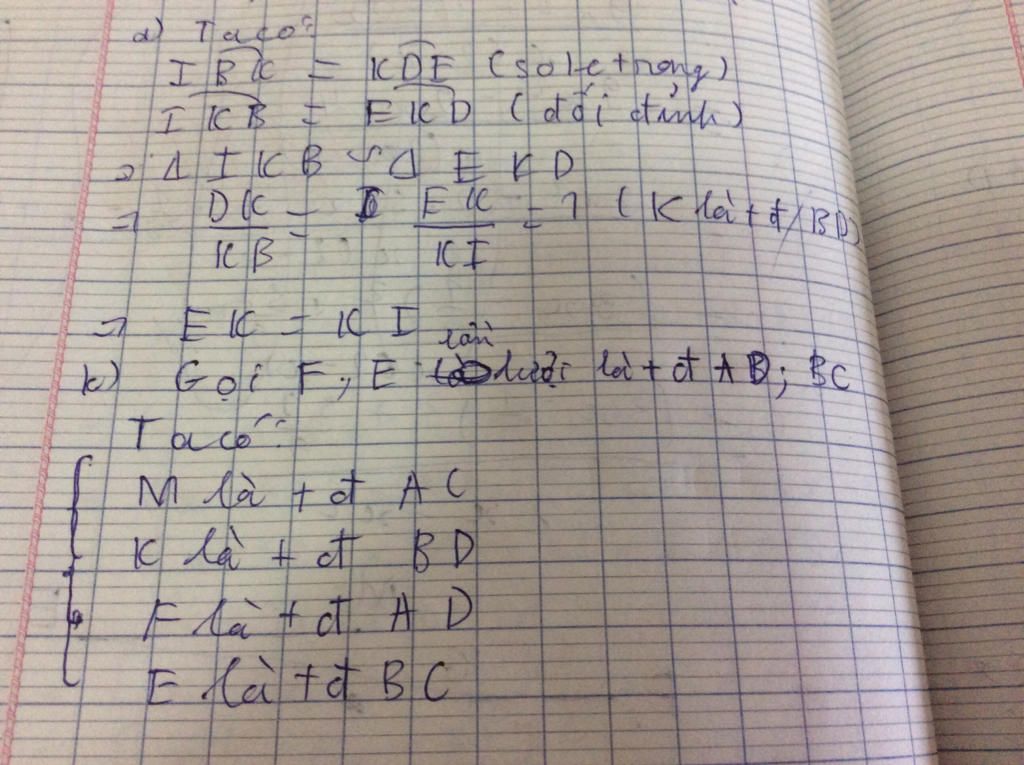 a) Ta có:
IBK = KDE (sole trong)
IKB = EKD (đối đỉnh)
=> Δ IKB ∽ Δ EKD
=> DK/KB = EK/KI = 1 (K là tđ BD)
=> EK = KI
b) Gọi F, E lần lượt là tđ AD; BC
Ta có:
M là tđ AC
K là tđ BD
F là tđ. AD
E là tđ BC